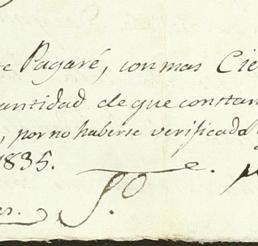 e Pagaré, con mas Cie
antidad de que constan
, por no haberse verificado
1835.
S.º e.
es.